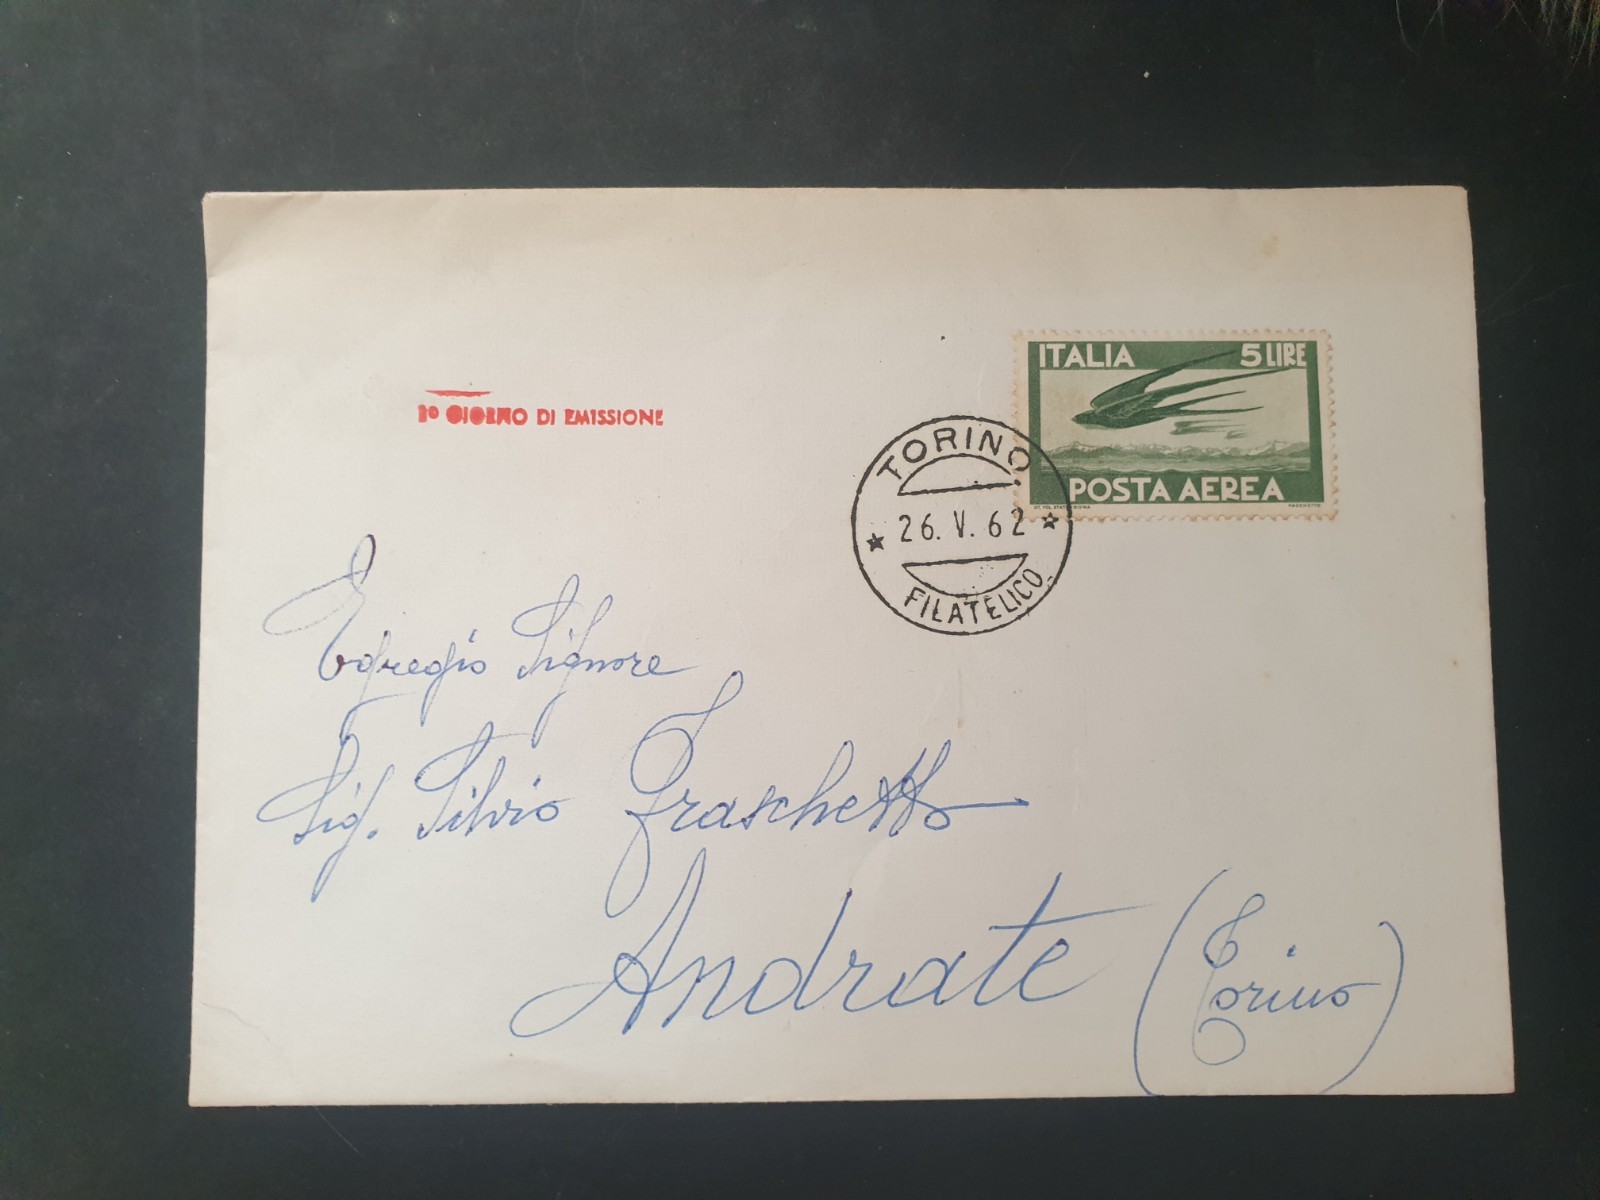 ITALIA 5 LIRE
POSTA AEREA
1º GIORNO DI EMISSIONE
TORINO
26. V. 62
FILATELICO
Egregio Signore
Sig. Silvio Fraschetto
Andrate (Torino)